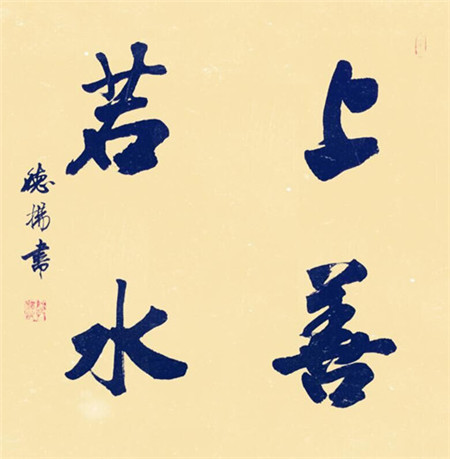 上善
若水
德揚書